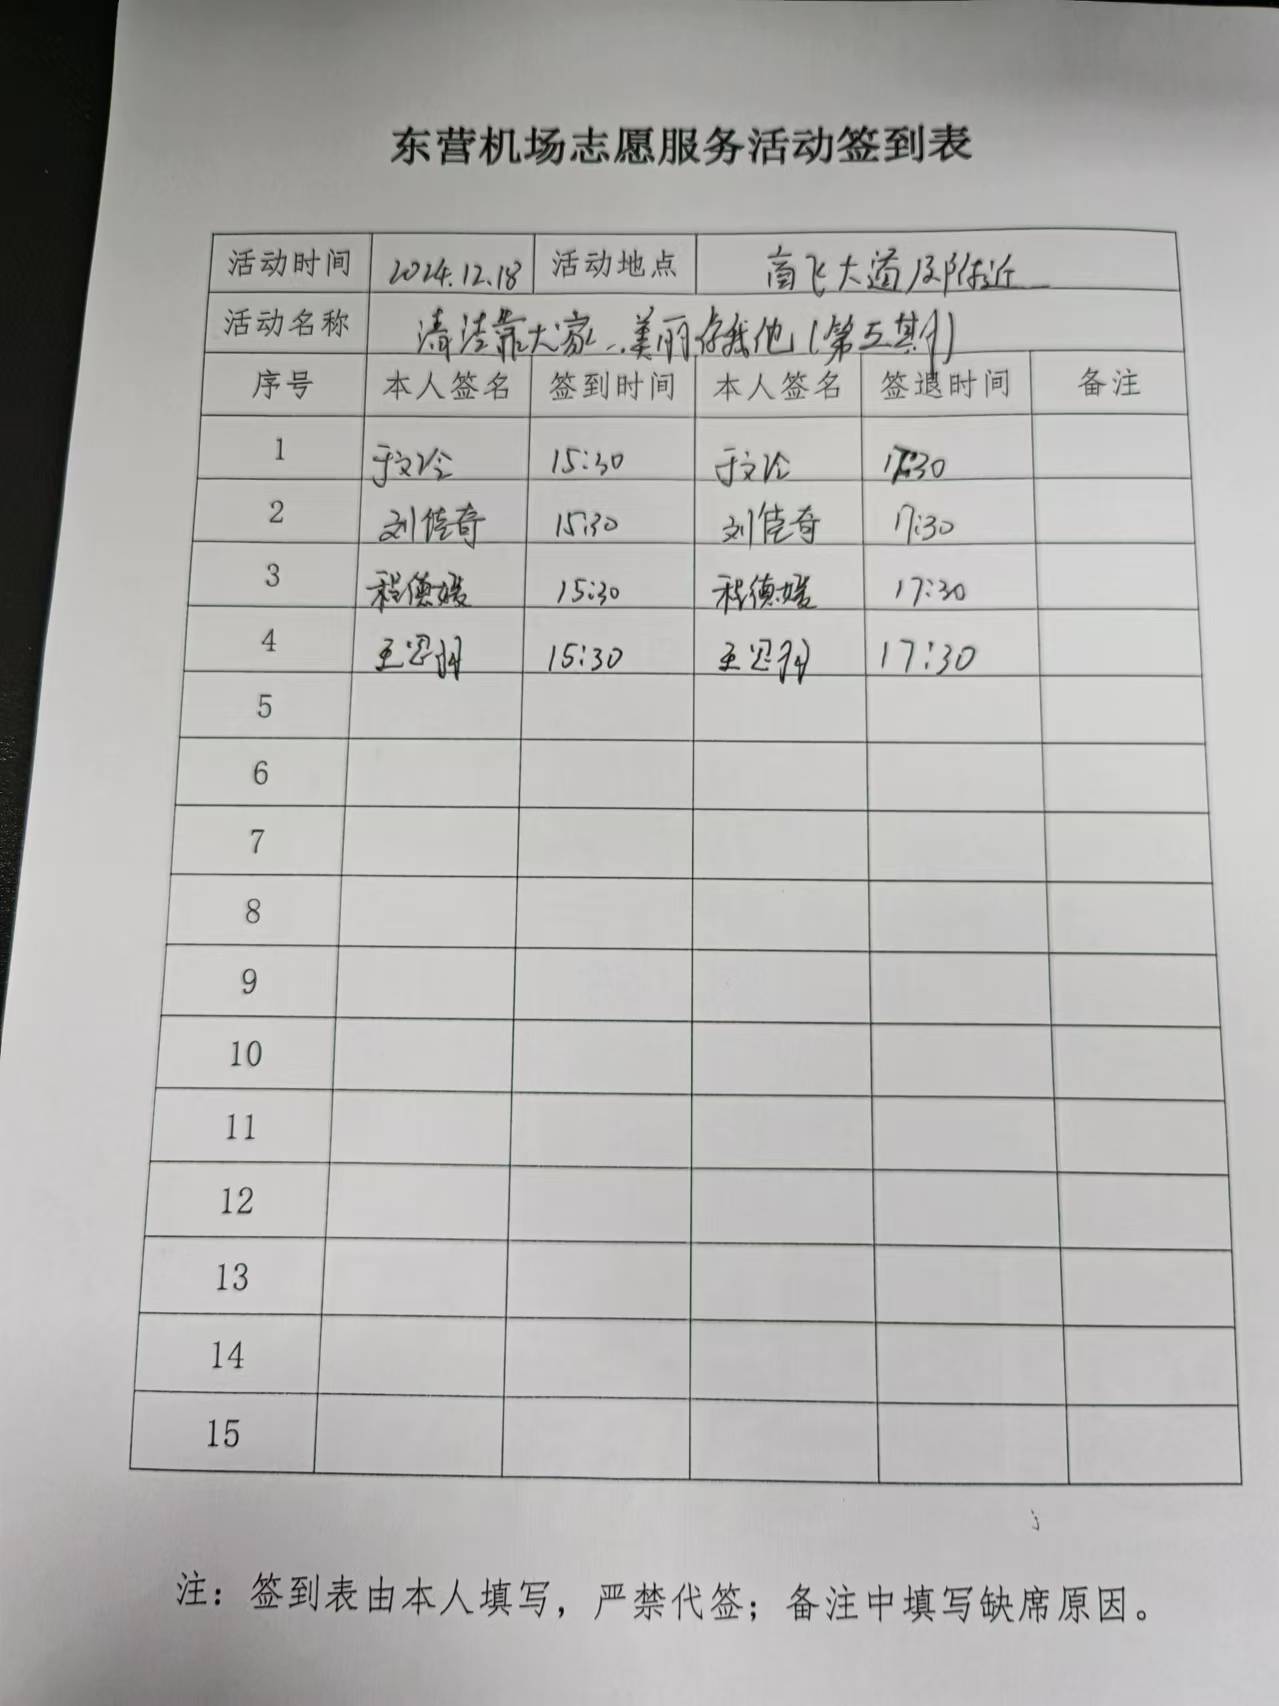 东营机场志愿服务活动签到表
活动时间 2024.12.18 活动地点 商飞大道及附近
活动名称 清洁靠大家,美丽你我他(第五期)
序号 本人签名 签到时间 本人签名 签退时间 备注
1 于文泠 15:30 于文泠 17:30
2 刘佳奇 15:30 刘佳奇 17:30
3 程德媛 15:30 程德媛 17:30
4 王思羽 15:30 王思羽 17:30
5
6
7
8
9
10
11
12
13
14
15
注:签到表由本人填写,严禁代签;备注中填写缺席原因。